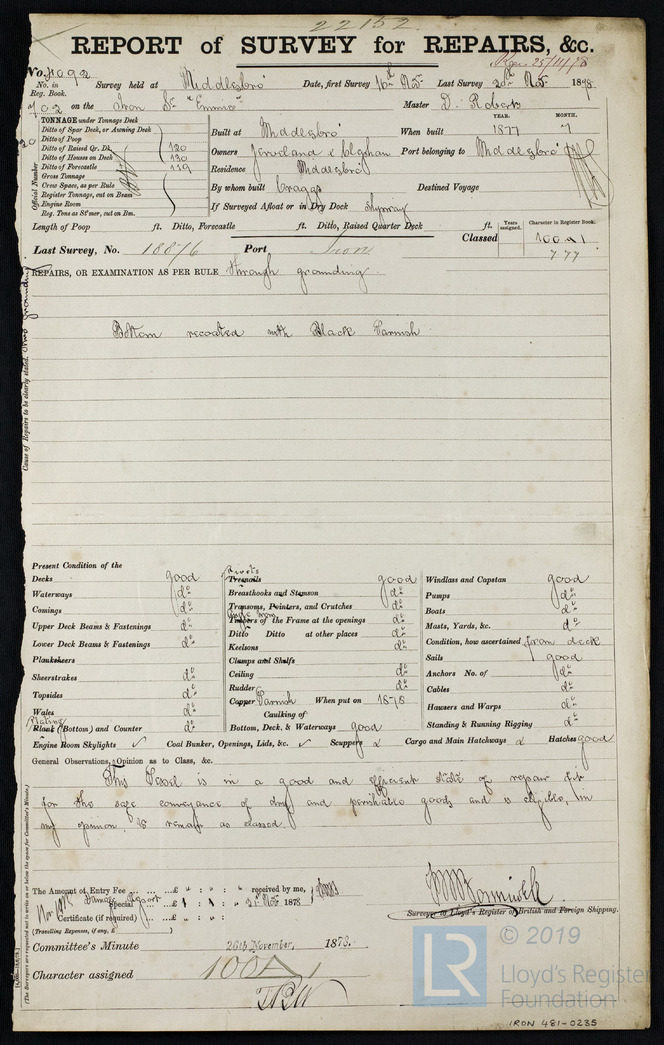 22152
REPORT of SURVEY for REPAIRS, &c.
No. 4092 Survey held at Middlesbro' Date, first Survey 16th Nov Last Survey 20th Nov 1878
No. in Reg. Book.
702 on the Iron Sr "Emmie" Master D. Roberts
TONNAGE under Tonnage Deck
Ditto of Spar Deck, or Awning Deck
Ditto of Poop
Ditto of Raised Qr. Dk. 120
Ditto of Houses on Deck 130
Ditto of Forecastle 119
Gross Tonnage
Crew Space, as per Rule
Register Tonnage, cut on Beam
Engine Room
Reg. Tons as St'mer, cut on Bm.
Official Number
Built at Middlesbro' When built YEAR. 1877 MONTH. 7
Owners Port belonging to Middlesbro'
Residence Middlesbro'
By whom built Craggs Destined Voyage
If Surveyed Afloat or in Dry Dock Slipway
Length of Poop ft. Ditto, Forecastle ft. Ditto, Raised Quarter Deck ft.
Years assigned. Character in Register Book.
Classed 100 A1
7.77
Last Survey, No. 18876 Port Iron
REPAIRS, OR EXAMINATION AS PER RULE through grounding
Bottom recoated with Black Varnish
Cause of Repairs to be clearly stated. grounding
Present Condition of the
Decks good
Waterways do
Comings do
Upper Deck Beams & Fastenings do
Lower Deck Beams & Fastenings do
Planksheers
Sheerstrakes do
Topsides do
Wales do
Plating
Plank (Bottom) and Counter do
Rivets
Treenails good
Breasthooks and Stemson do
Transoms, Pointers, and Crutches do
Angle Iron
Timbers of the Frame at the openings do
Ditto Ditto at other places do
Keelsons do
Clamps and Shelfs
Ceiling do
Rudder do
Copper Varnish When put on 1878
Caulking of
Bottom, Deck, & Waterways good
Windlass and Capstan good
Pumps do
Boats do
Masts, Yards, &c. do
Condition, how ascertained from deck
Sails good
Anchors No. of do
Cables do
Hawsers and Warps do
Standing & Running Rigging do
Engine Room Skylights ✓ Coal Bunker, Openings, Lids, &c. ✓ Scuppers Cargo and Main Hatchways Hatches good
General Observations, Opinion as to Class, &c.
This Vessel is in a good and efficient state of repair fit
for the safe conveyance of dry and perishable goods and is eligible, in
my opinion, to remain as classed
The Amount of Entry Fee ... £ " : " : " received by me,
Special ... £ 1 : 1 : " 21st Nov 1878
Damage Report
Certificate (if required) ... £ " : " : "
(Travelling Expenses, if any, £ )
Surveyor to Lloyd's Register of British and Foreign Shipping.
Committee's Minute 26th November, 1878.
Character assigned 100A1
(The Surveyors are requested not to write on or below the space for Committee's Minute.)
LR © 2019
Lloyd's Register
Foundation
IRON 481-0235